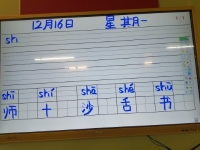 12月16日 星期一
shi
shī shí shā shé shū
师 十 沙 舌 书